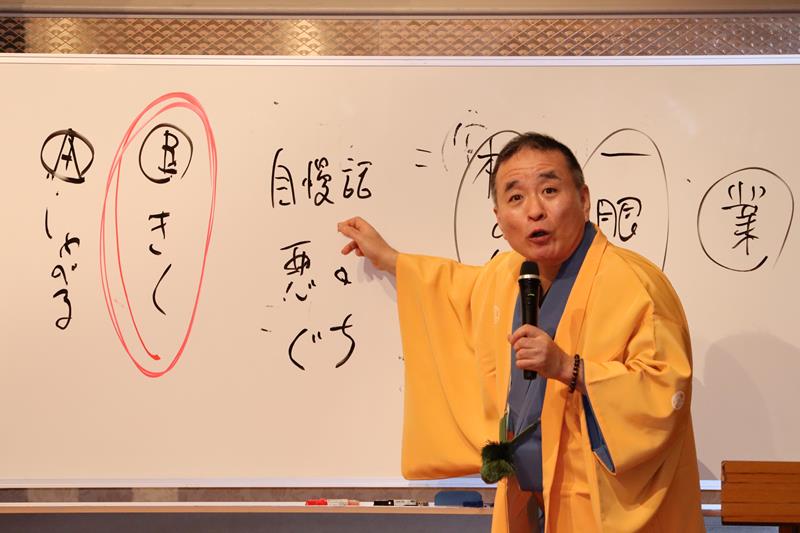 Ⓐ しゃべる
Ⓑ きく
自慢話
悪口
ぐち
=
一
業